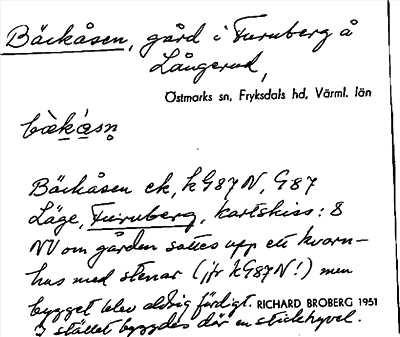 Bäckåsen, gård i Furuberg å
Långerud,
Östmarks sn, Fryksdals hd, Värml. län
bä̀kásn̥
Bäckåsen ek, kG87N, G87
Läge, Furuberg, kartskiss: 8
NV om gården sattes upp ett kvarn-
hus med stenar (jfr kG87N!) men
bygget blev aldrig färdigt. RICHARD BROBERG 1951
I stället byggdes där en stickhyvel.